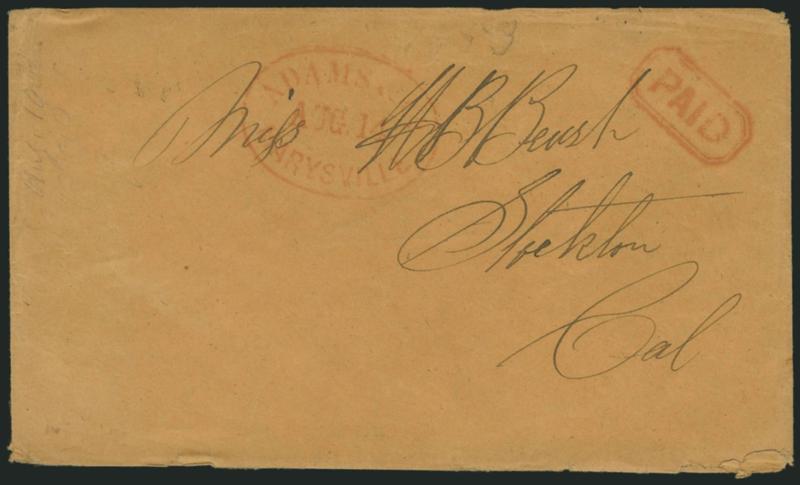 ADAMS &
AUG. 10
MARYSVILLE
PAID
Miss H B Beush
Stockton
Cal